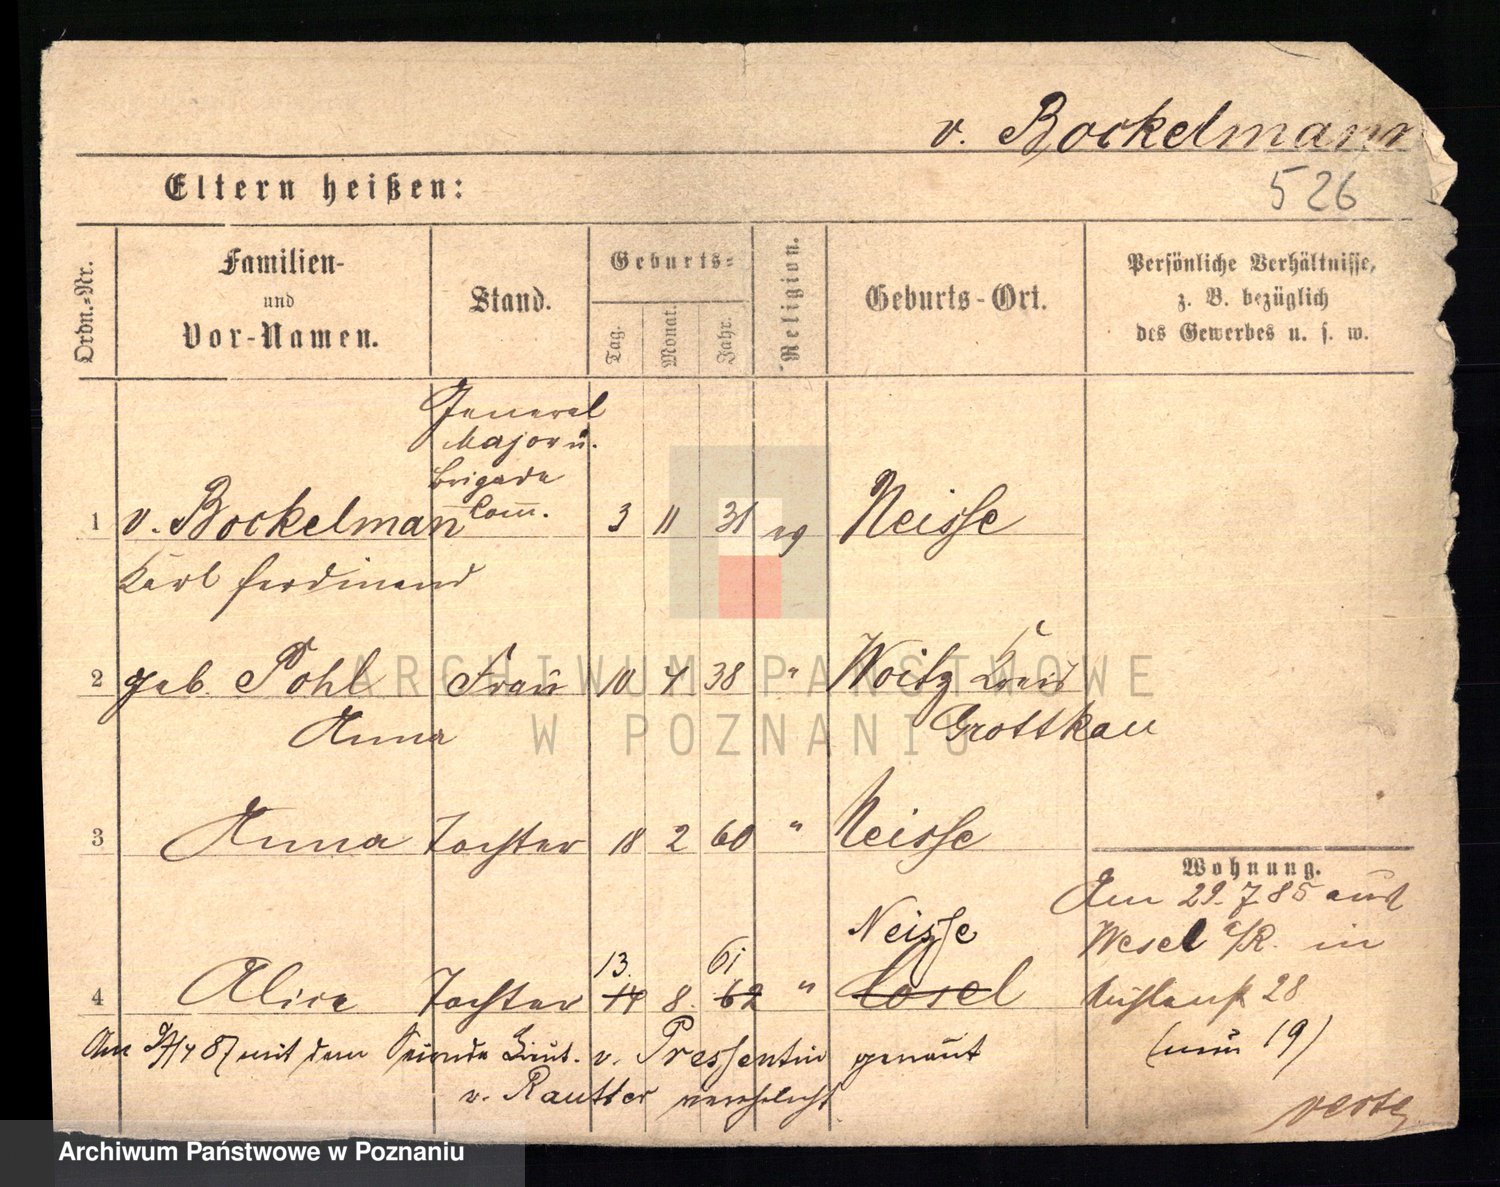 v. Bockelmann
526
Eltern heißen:
Ordn.-Nr.
Familien-
und
Vor-Namen.
Stand.
Geburts-
Tag.
Monat.
Jahr.
Religion.
Geburts-Ort.
Persönliche Verhältnisse,
z. B. bezüglich
des Gewerbes u. s. w.
General
Major u.
Brigade
Com̅.
1 v. Bockelman 3 11 31 ev Neisse
Karl Ferdinand
2 geb. Pohl Frau 10 4 38 " Woitz Kreis
Anna Grottkau
3 Anna Tochter 18 2 60 " Neisse
Wohnung.
Am 29.7.85 aus
Wesel a/R. in
28
(nun 19)
Neisse
13. 61
4 Alice Tochter 14 8. 62 " Cosel
Am 87 mit dem Seconde Lieut. v. Pressentin genannt
v. Rautter verehelicht.
verte
ARCHIWUM PAŃSTWOWE
W POZNANIU
Archiwum Państwowe w Poznaniu